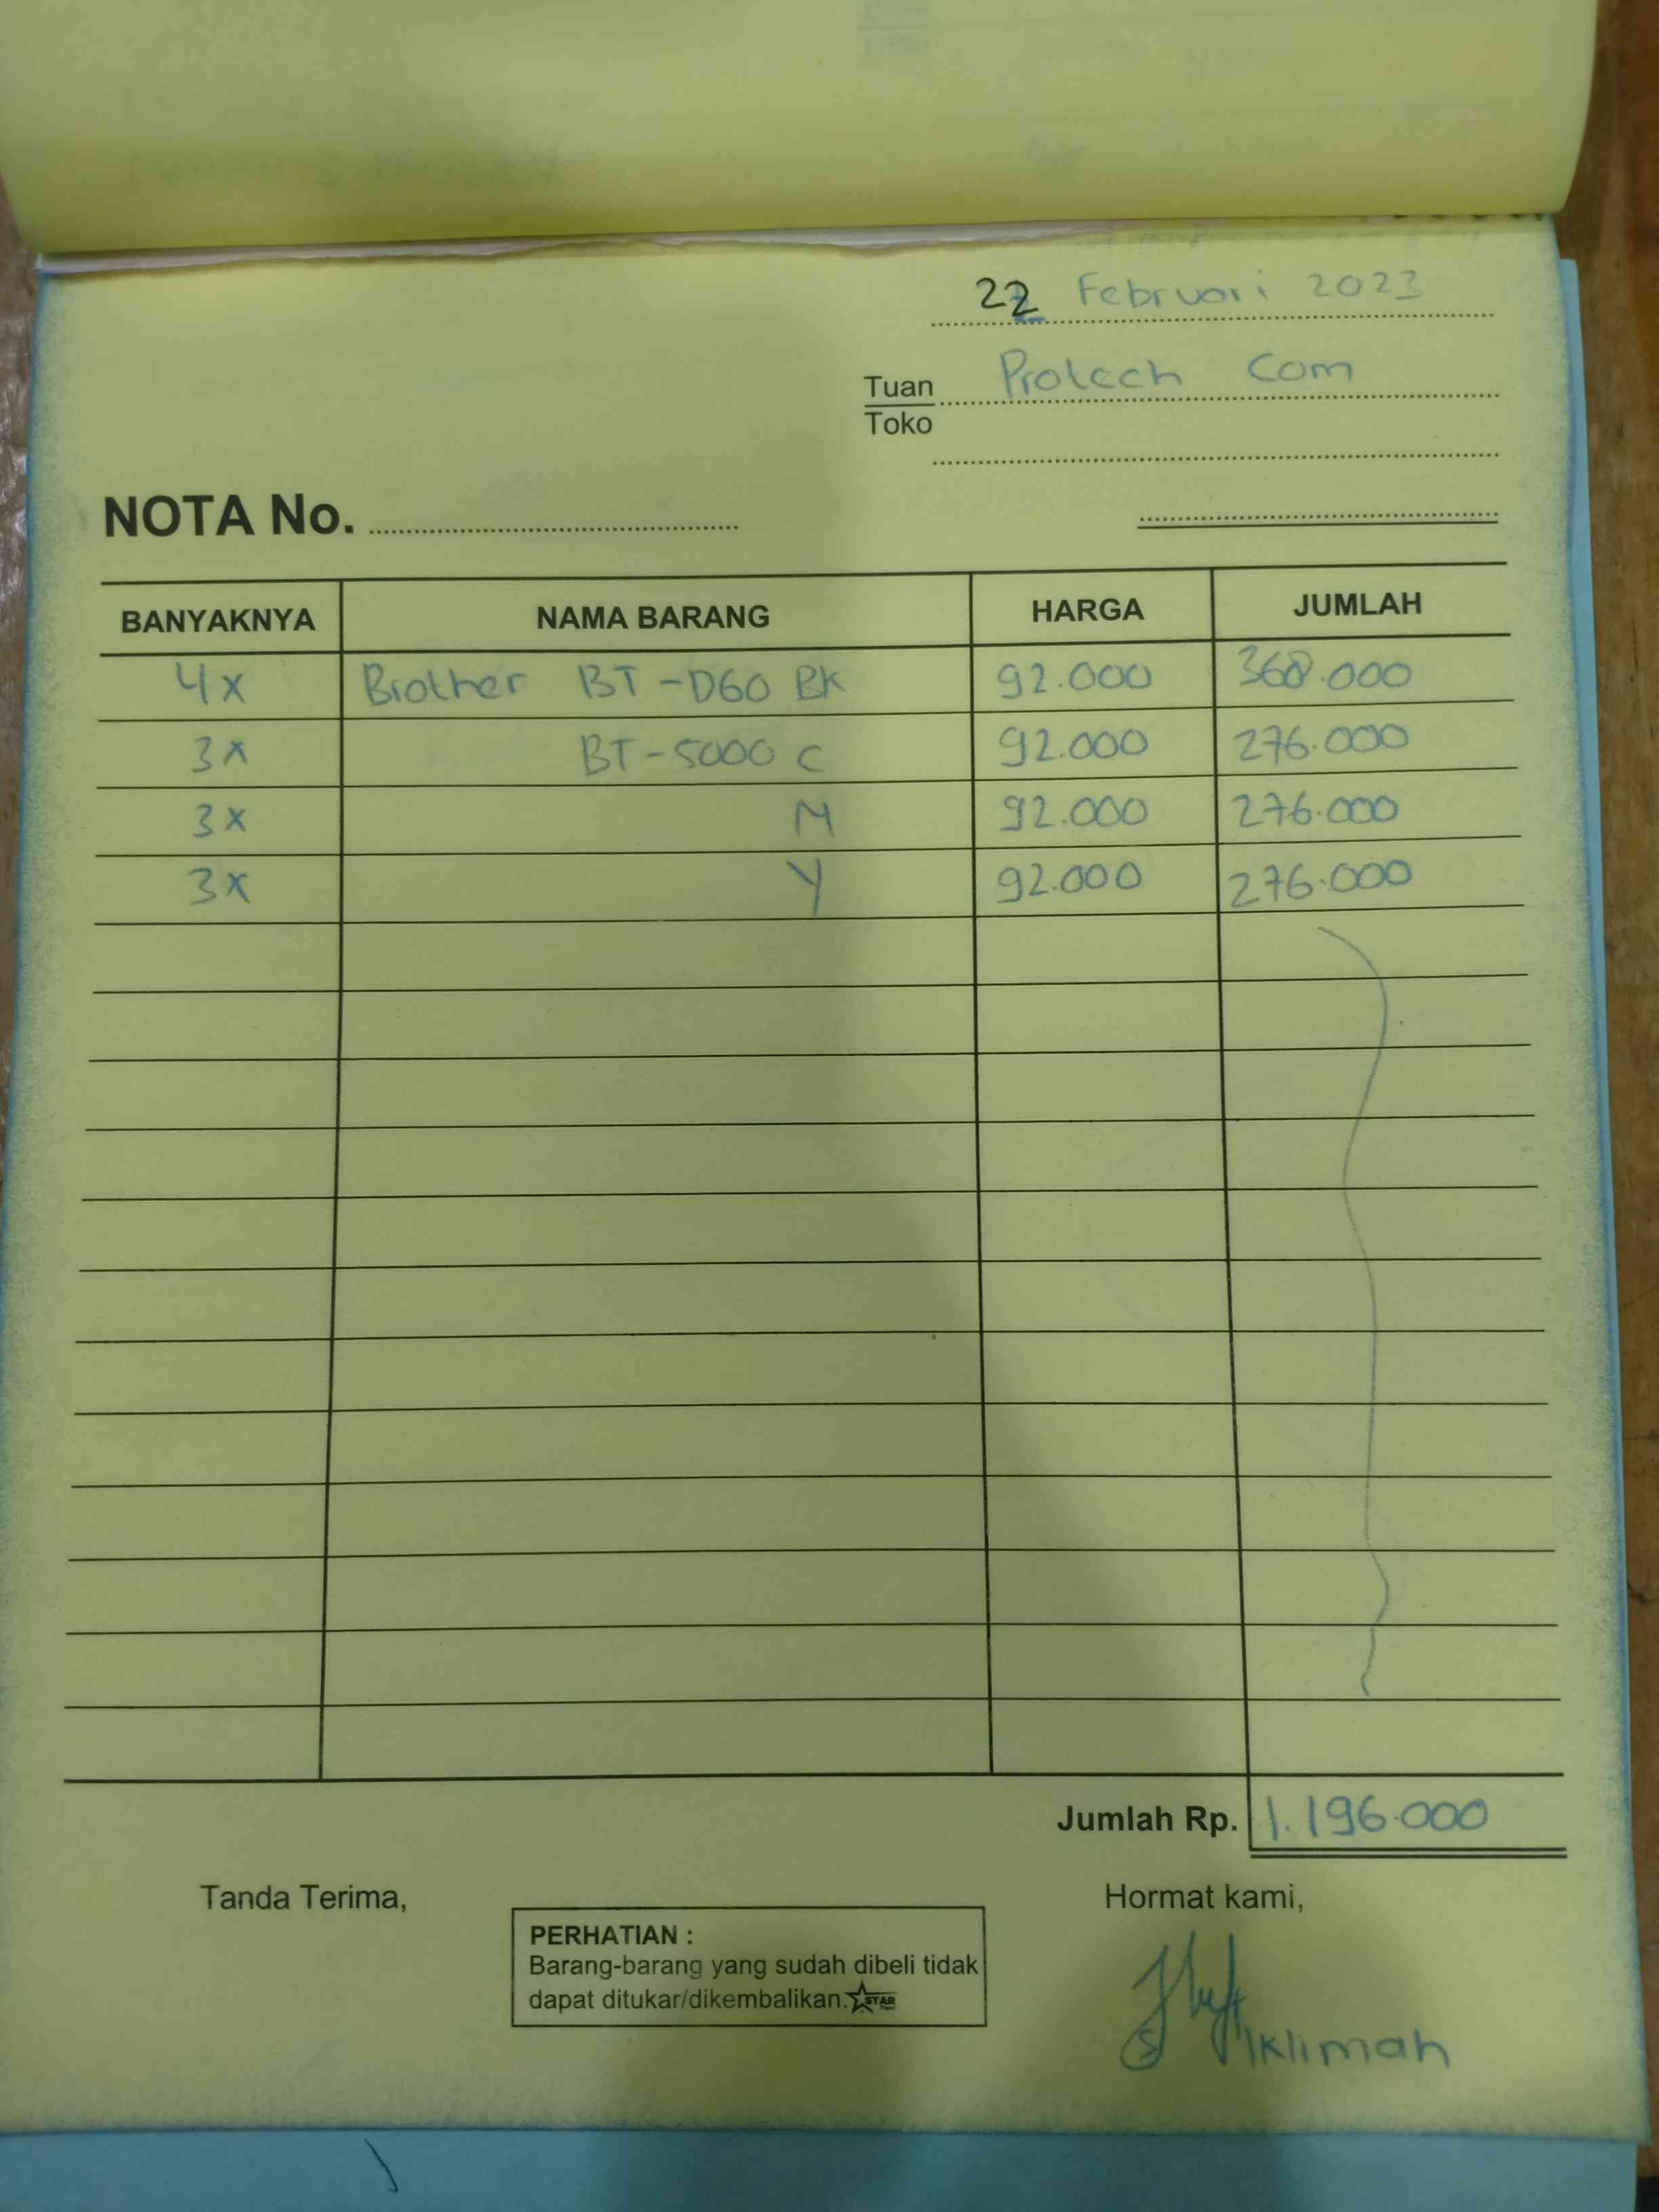 22 Februari 2023
Tuan Protech Com
Toko
NOTA No.
BANYAKNYA NAMA BARANG HARGA JUMLAH
4x Brother BT-D60 BK 92.000 368.000
3x BT-5000 C 92.000 276.000
3x M 92.000 276.000
3x Y 92.000 276.000
Jumlah Rp. 1.196.000
Tanda Terima, Hormat kami,
PERHATIAN :
Barang-barang yang sudah dibeli tidak
dapat ditukar/dikembalikan. STAR
Iklimah